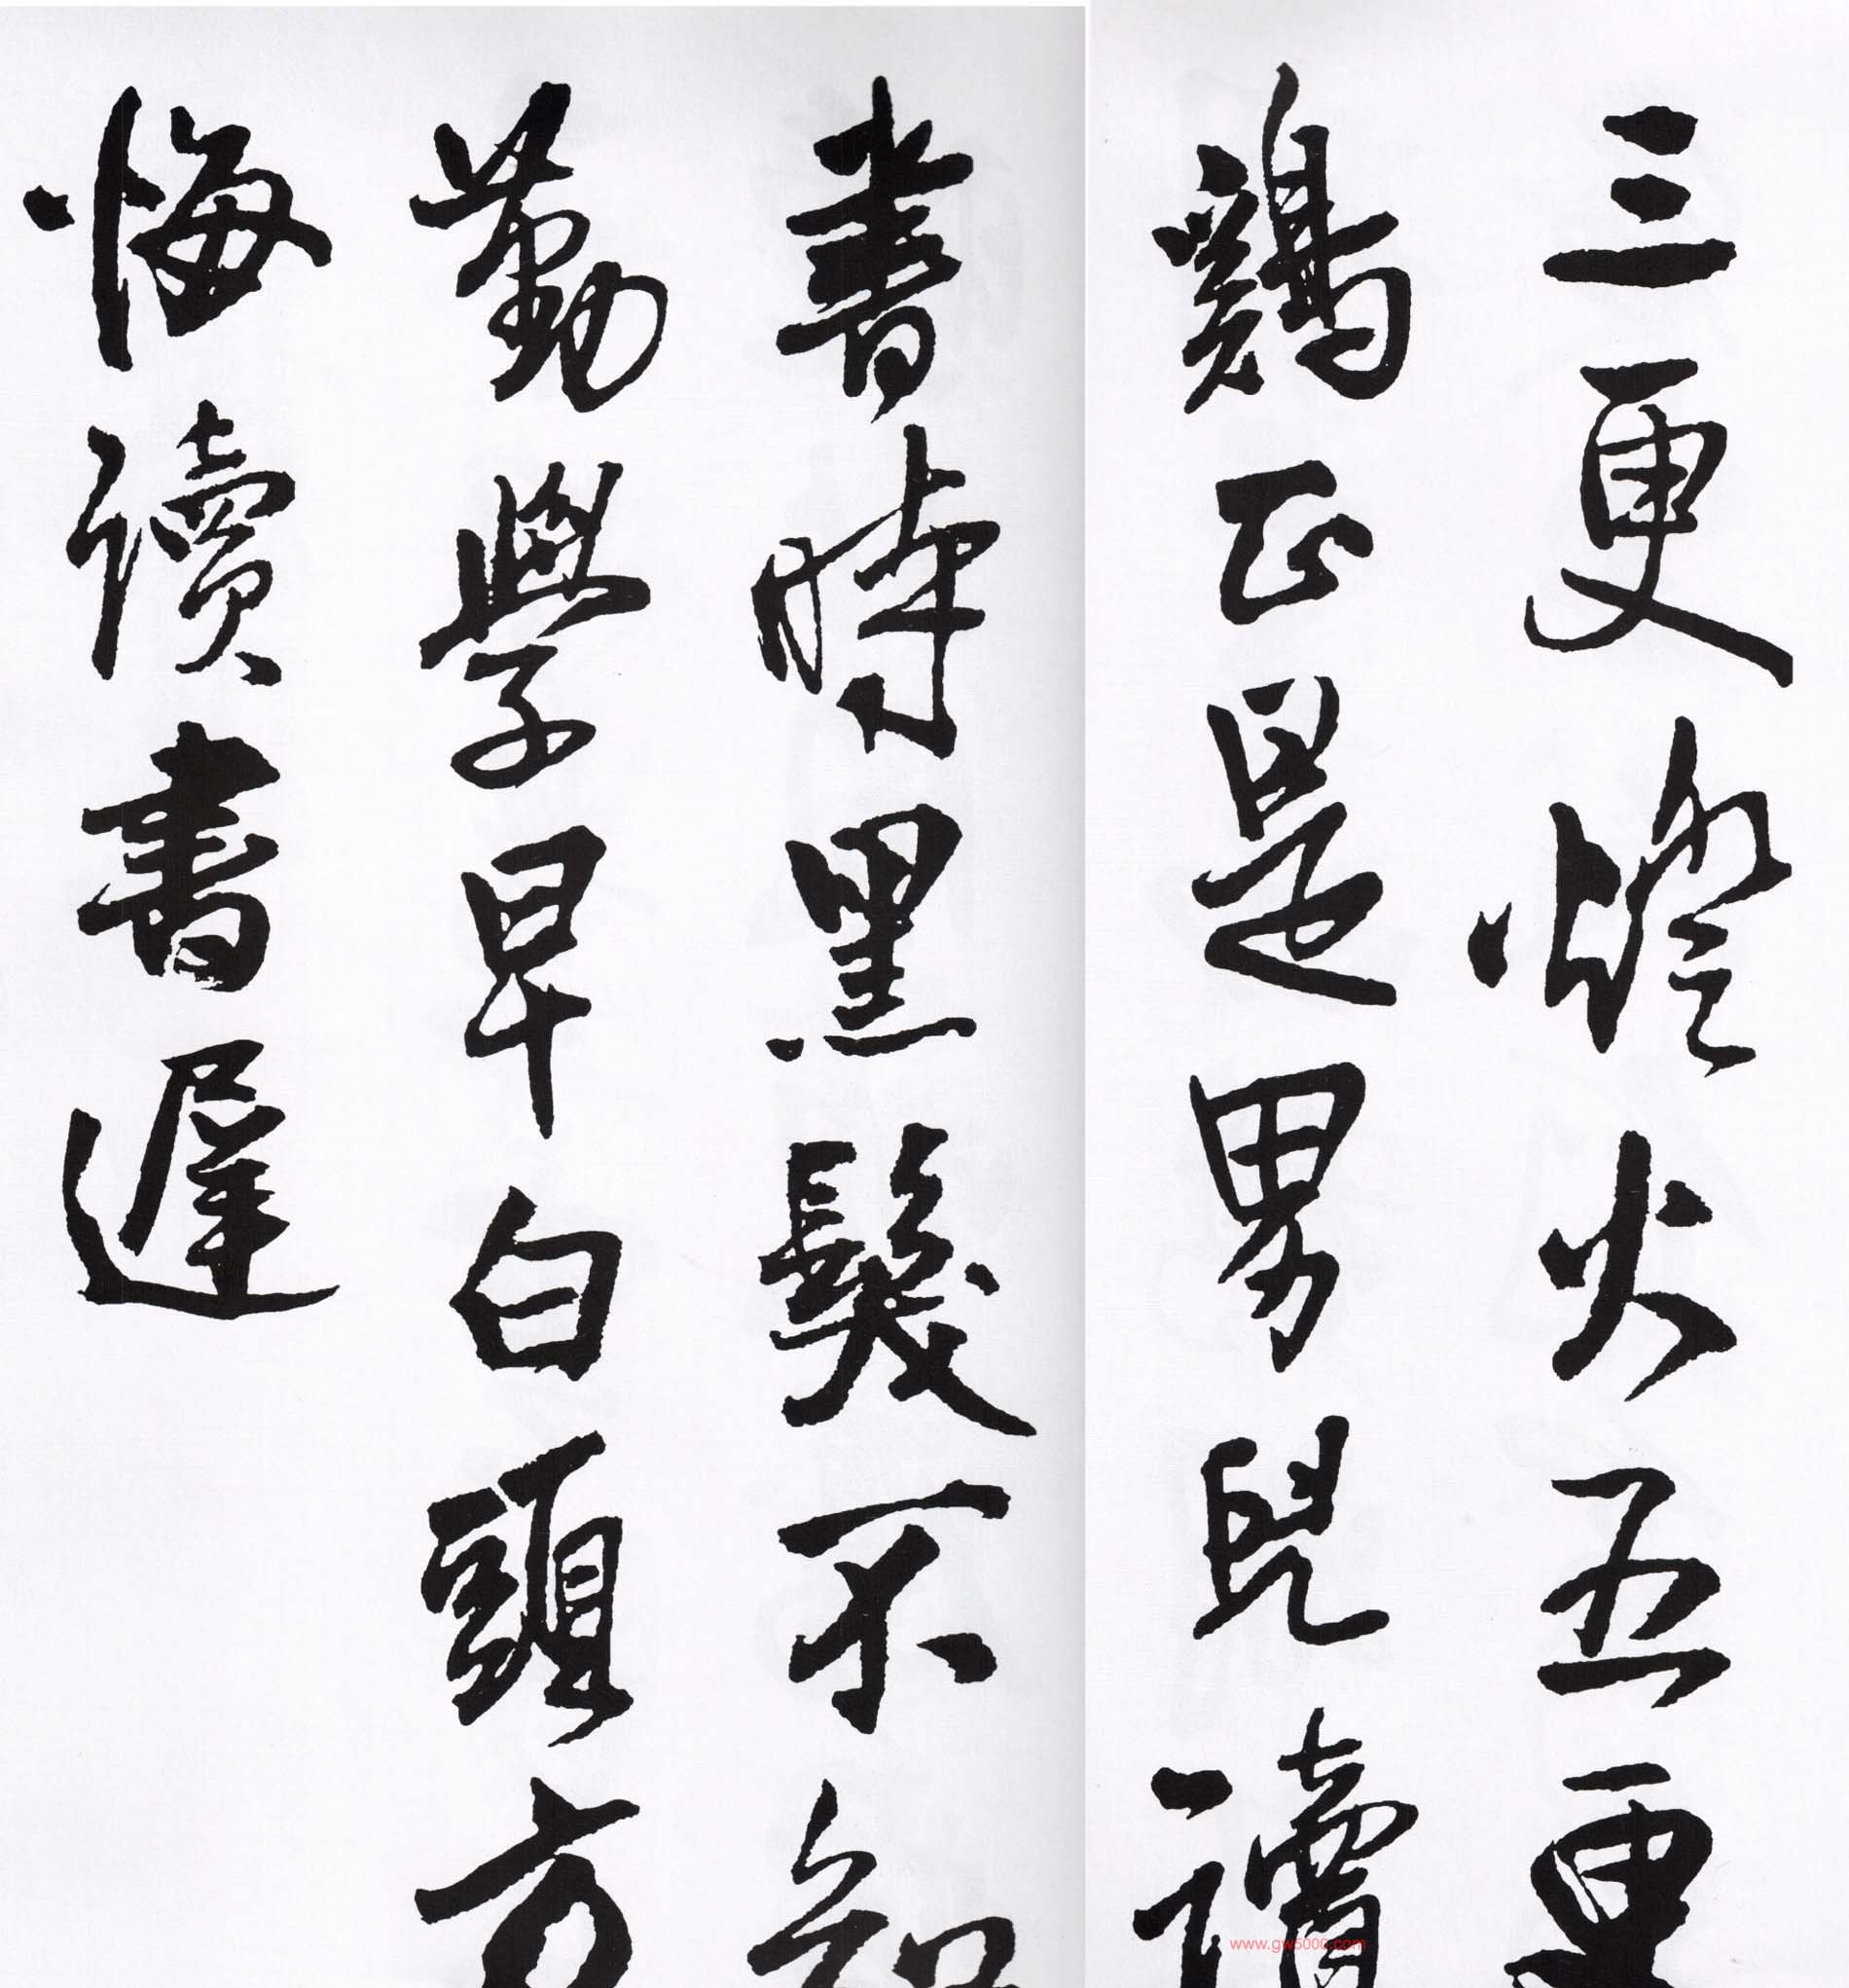 三更燈火五更
鷄正是男兒讀
書時黑髮不知
勤學早白頭方
悔讀書遲
www.gw5000.com